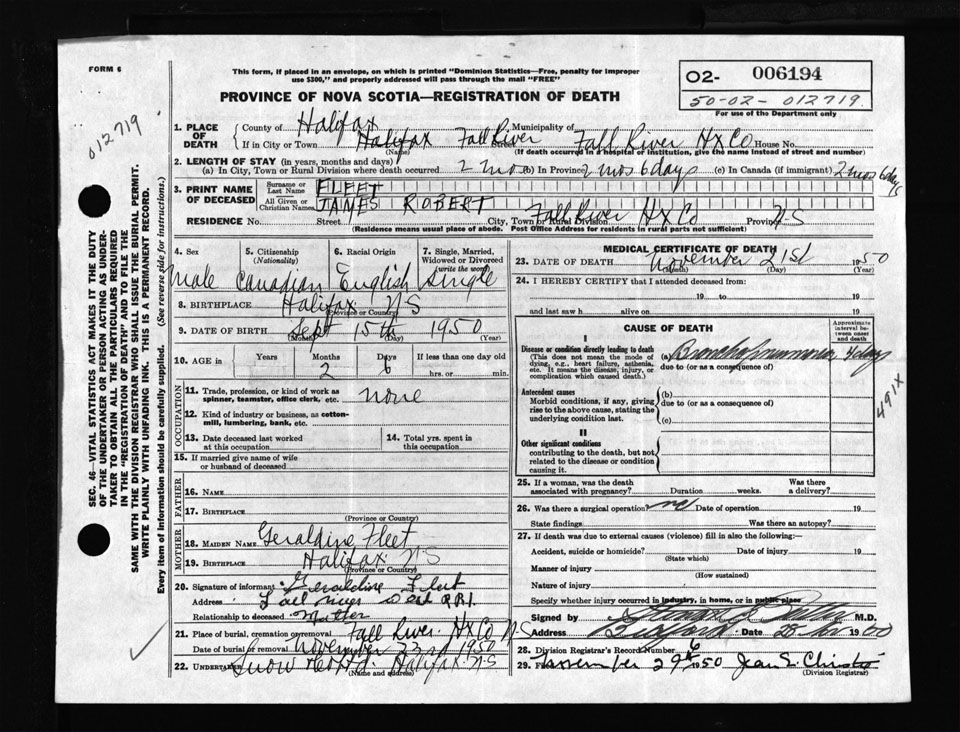 FORM 6
This form, if placed in an envelope, on which is printed "Dominion Statistics—Free, penalty for improper
use $300," and properly addressed will pass through the mail "FREE"
PROVINCE OF NOVA SCOTIA—REGISTRATION OF DEATH
O2- 006194
50-02- 012719.
For use of the Department only
012719
SEC. 46—VITAL STATISTICS ACT MAKES IT THE DUTY
OF THE UNDERTAKER OR PERSON ACTING AS UNDER-
TAKER TO OBTAIN ALL THE PARTICULARS REQUIRED
IN THE "REGISTRATION OF DEATH" AND TO FILE THE
SAME WITH THE DIVISION REGISTRAR WHO SHALL ISSUE THE BURIAL PERMIT.
WRITE PLAINLY WITH UNFADING INK. THIS IS A PERMANENT RECORD.
Every item of information should be carefully supplied. (See reverse side for instructions.)
1. PLACE OF DEATH County of Halifax Municipality of
If in City or Town Halifax Fall River Street Fall River Hx Co House No.
(Name) (If death occurred in a hospital or institution, give the name instead of street and number)
2. LENGTH OF STAY (in years, months and days)
(a) In City, Town or Rural Division where death occurred 2 mos (b) In Province 2 mos 6 days (c) In Canada (if immigrant) 2 mos 6 days
3. PRINT NAME OF DECEASED Surname or Last Name FLEET
All Given or Christian Names JAMES ROBERT
RESIDENCE No. Street City, Town or Rural Division Fall River Hx Co Province N-S
(Residence means usual place of abode. Post Office Address for residents in rural parts not sufficient)
4. Sex 5. Citizenship (Nationality) 6. Racial Origin 7. Single, Married, Widowed or Divorced (write the word)
Male Canadian English Single
8. BIRTHPLACE Halifax NS
(Province or Country)
9. DATE OF BIRTH Sept 15th 1950
(Month) (Day) (Year)
10. AGE in Years Months Days If less than one day old
2 6 hrs. or min.
OCCUPATION
11. Trade, profession, or kind of work as
spinner, teamster, office clerk, etc. none
12. Kind of industry or business, as cotton-
mill, lumbering, bank, etc.
13. Date deceased last worked at this occupation
14. Total yrs. spent in this occupation
15. If married give name of wife
or husband of deceased
FATHER
16. NAME
17. BIRTHPLACE
(Province or Country)
MOTHER
18. MAIDEN NAME Geraldine Fleet
19. BIRTHPLACE Halifax NS
(Province or Country)
20. Signature of informant Geraldine Fleet
Address Fall River R.R.1.
Relationship to deceased Mother
21. Place of burial, cremation or removal Fall River Hx Co NS
Date of burial or removal November 23rd 1950
22. UNDERTAKER Snow Halifax NS
(Name and address)
MEDICAL CERTIFICATE OF DEATH
23. DATE OF DEATH November 21st 1950
(Month) (Day) (Year)
24. I HEREBY CERTIFY that I attended deceased from:
19 to 19
and last saw h alive on 19
CAUSE OF DEATH
Approximate interval between onset and death
I
Disease or condition directly leading to death
(This does not mean the mode of
dying, e.g., heart failure, asthenia,
etc. It means the disease, injury, or
complication which caused death.)
(a) Bronchopneumonia 4 days
due to (or as a consequence of)
491X
Antecedent causes
Morbid conditions, if any, giving
rise to the above cause, stating the
underlying condition last.
(b)
due to (or as a consequence of)
(c)
II
Other significant conditions
contributing to the death, but not
related to the disease or condition
causing it.
25. If a woman, was the death
associated with pregnancy? Duration weeks. Was there a delivery?
26. Was there a surgical operation? no Date of operation 19
State findings Was there an autopsy?
27. If death was due to external causes (violence) fill in also the following:—
Accident, suicide or homicide? Date of injury 19
(State which)
Manner of injury
(How sustained)
Nature of injury
Specify whether injury occurred in industry, in home, or in public place
Signed by M.D.
Address Bedford Date 28 1950
28. Division Registrar's Record Number 6
29. Filed November 29th 1950 Jean S. Christie
(Division Registrar)